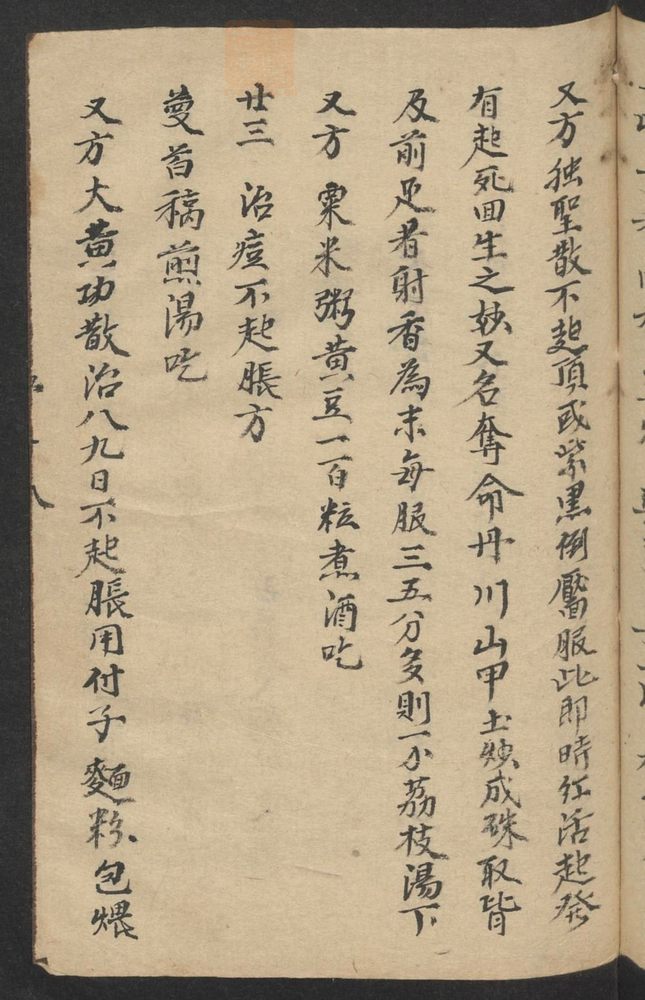 又方独聖散不起頂或紫黒倒靨服此即時红活起發
有起死回生之妙又名奪命丹川山甲土炒成珠取背
及前足者射香為末每服三五分多則一分荔枝湯下
又方粟米粥黄豆一百粒煮酒吃
廿三 治痘不起脹方
蔓首稿煎湯吃
又方大黄功散治八九日不起脹用付子麵粉包煨